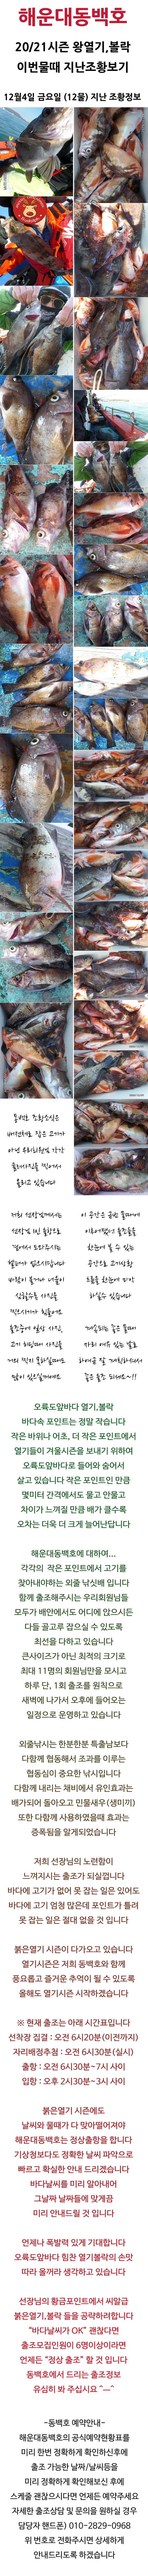 해운대동백호
20/21시즌 왕열기,볼락
이번물때 지난조황보기
12월4일 금요일 (12물) 지난 조황정보
동백호 조황소식은
오륙도앞바다 열기,볼락
바다속 포인트는 정말 작습니다
작은 바위나 어초, 더 작은 포인트에서
열기들이 겨울시즌을 보내기 위하여
오륙도앞바다로 들어와 숨어서
살고 있습니다 작은 포인트인 만큼
몇미터 간격에서도 물고 안물고
차이가 느껴질 만큼 배가 클수록
오차는 더욱 더 크게 늘어난답니다
해운대동백호에 대하여...
각각의 작은 포인트에서 고기를
찾아내야하는 외줄 낚싯배 입니다
함께 출조해주시는 우리회원님들
모두가 배안에서도 어디에 앉으시든
다들 골고루 잡으실 수 있도록
최선을 다하고 있습니다
큰사이즈가 아닌 최적의 크기로
최대 11명의 회원님만을 모시고
하루 단, 1회 출조를 원칙으로
새벽에 나가서 오후에 들어오는
일정으로 운영하고 있습니다
외줄낚시는 한분한분 특출남보다
다함께 협동해서 조과를 이루는
협동심이 중요한 낚시입니다
다함께 내리는 채비에서 유인효과는
배가되어 돌아오고 민물새우(생미끼)
또한 다함께 사용하였을때 효과는
증폭됨을 알게되었습니다
저희 선장님의 노련함이
느껴지시는 출조가 되실껍니다
바다에 고기가 없어 못 잡는 일은 있어도
바다에 고기 엄청 많은데 포인트를 틀려
못 잡는 일은 절대 없을 것 입니다
붉은열기 시즌이 다가오고 있습니다
열기시즌은 저희 동백호와 함께
풍요롭고 즐거운 추억이 될 수 있도록
올해도 열기시즌 시작하겠습니다
※ 현재 출조는 아래 시간표입니다
선착장 집결 : 오전 6시20분(이전까지)
자리배정추첨 : 오전 6시30분(실시)
출항 : 오전 6시30분~7시 사이
입항 : 오후 2시30분~3시 사이
붉은열기 시즌에도
날씨와 물때가 다 맞아떨어져야
해운대동백호는 정상출항을 합니다
기상청보다도 정확한 날씨 파악으로
빠르고 확실한 안내 드리겠습니다
바다날씨를 미리 알아내어
그날짜 날짜들에 맞게끔
미리 안내드릴 것 입니다
언제나 폭발력 있게 기대합니다
오륙도앞바다 힘찬 열기볼락의 손맛
따라 올꺼라 생각하고 있습니다
선장님의 황금포인트에서 씨알급
붉은열기,볼락 들을 공략하려합니다
"바다날씨가 OK" 괜찮다면
출조모집인원이 6명이상이라면
언제든 "정상 출조" 할 것 입니다
동백호에서 드리는 출조정보
유심히 봐 주십시요 ^ㅡ^
-동백호 예약안내-
해운대동백호의 공식예약현황표를
미리 한번 정확하게 확인하신후에
출조 가능한 날짜/날씨등을
미리 정확하게 확인해보신 후에
스케줄 괜찮으시다면 언제든 예약주세요
자세한 출조상담 및 문의을 원하실 경우
담당자 핸드폰) 010-2829-0968
위 번호로 전화주시면 상세하게
안내드리도록 하겠습니다